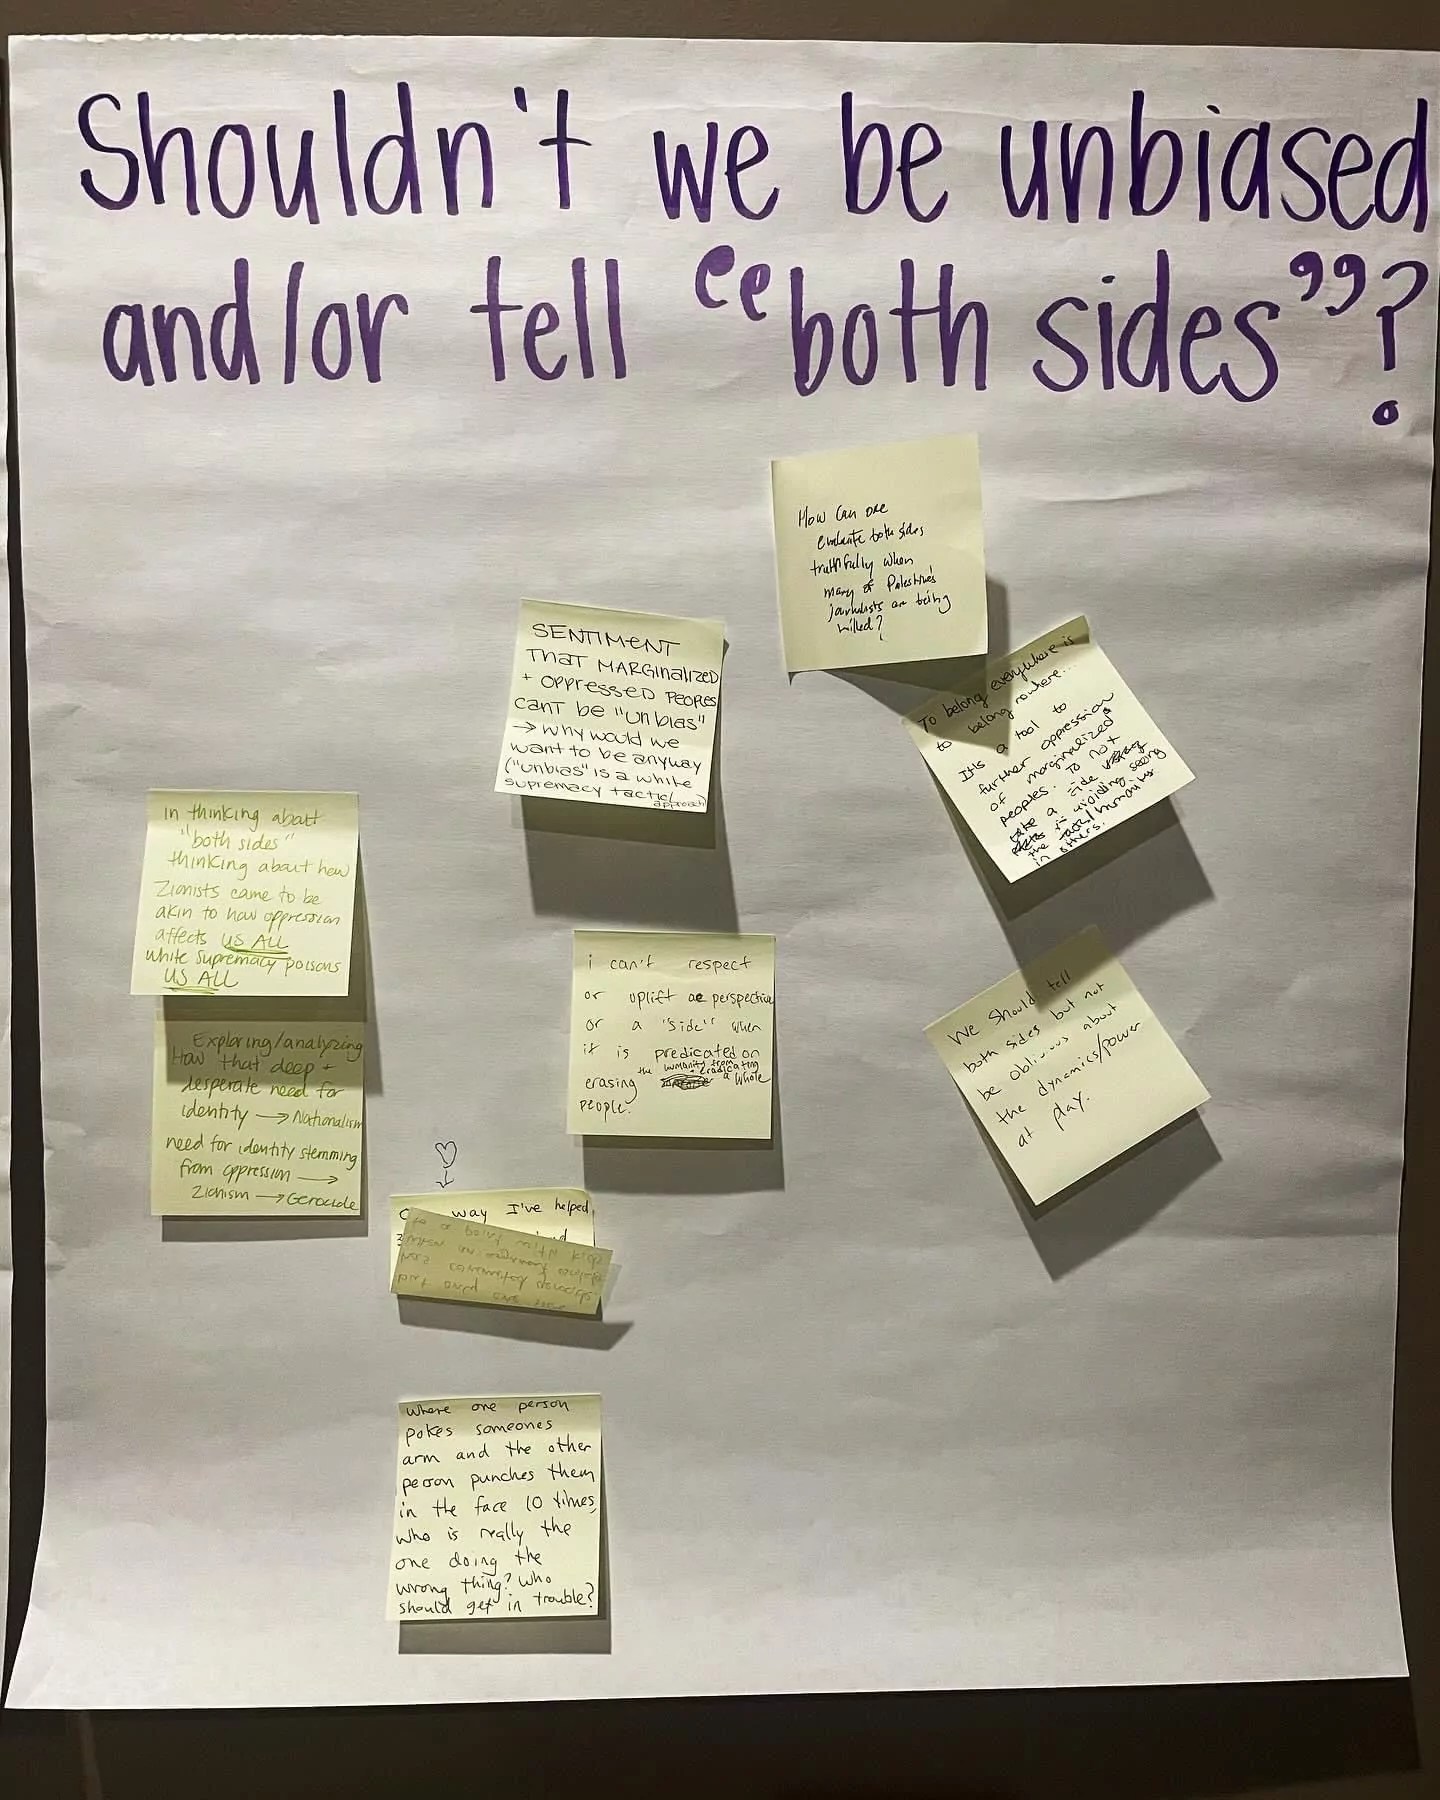 Shouldn't we be unbiased
and/or tell "both sides"?
How can one
evaluate both sides
truthfully when
many of Palestine's
journalists are being
killed?
SENTIMENT
THAT MARGINALIZED
+ OPPRESSED PEOPLES
CAN'T BE "UNBIAS"
→ WHY WOULD WE
WANT TO BE ANYWAY
("UNBIAS" IS A WHITE
SUPREMACY TACTIC/
approach)
To belong everywhere is
to belong nowhere...
It's a tool to
further oppression
of marginalized
peoples. To not
take a side
is avoiding seeing
the facts/humanities
in others.
in thinking about
"both sides"
thinking about how
Zionists came to be
akin to how oppression
affects US ALL
white supremacy poisons
US ALL
Exploring/analyzing
How that deep +
desperate need for
identity → Nationalism
need for identity stemming
from oppression →
Zionism → Genocide
i can't respect
or uplift a perspective
or a "side" when
it is predicated on
erasing the humanity from
+ eradicating a whole
people.
We should tell
both sides but not
be oblivious about
the dynamics/power
at play.
way I've helped
where one person
pokes someones
arm and the other
person punches them
in the face 10 times,
who is really the
one doing the
wrong thing? Who
should get in trouble?